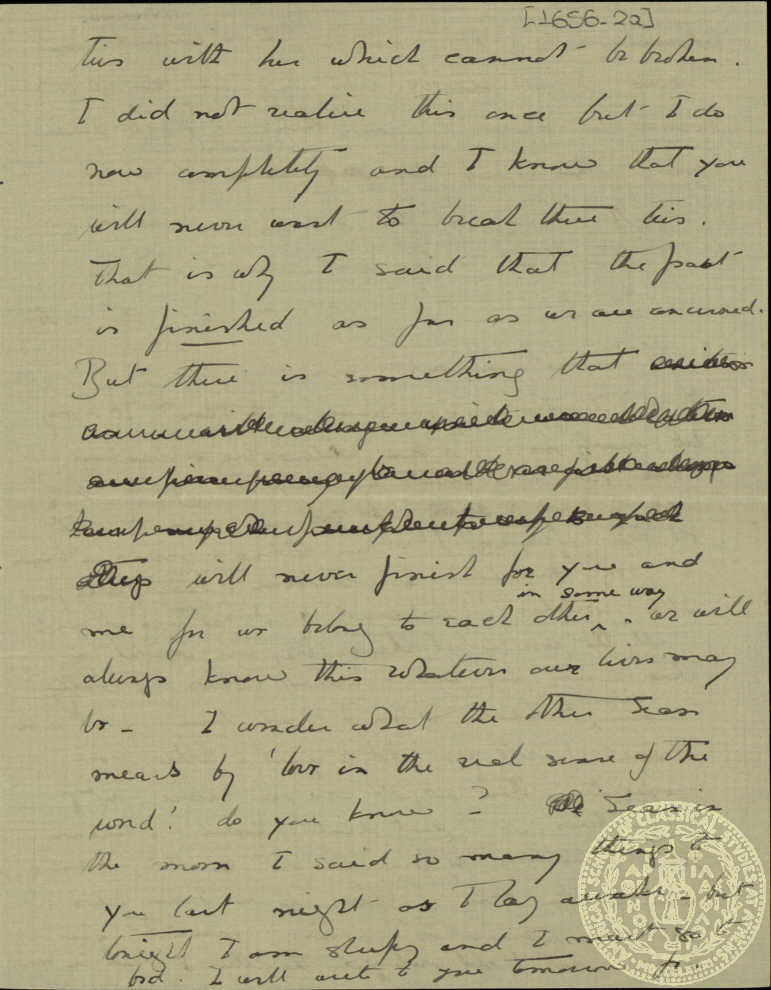 [1656-2a]
ties with her which cannot be broken.
I did not realise this once but I do
now completely and I know that you
will never want to break these ties.
That is why I said that the past
is finished as far as we are concerned.
But there is something that
will never finish for you and
in some way
me for we belong to each other ‸. we will
always know this whatever our lives may
be - I wonder what the other Sean
means by 'love in the real sense of the
word'. do you know? Sean in
the morn I said so many things to
you last night as I lay awake - but
tonight I am sleepy and I must go to
bed. I will write to you tomorrow